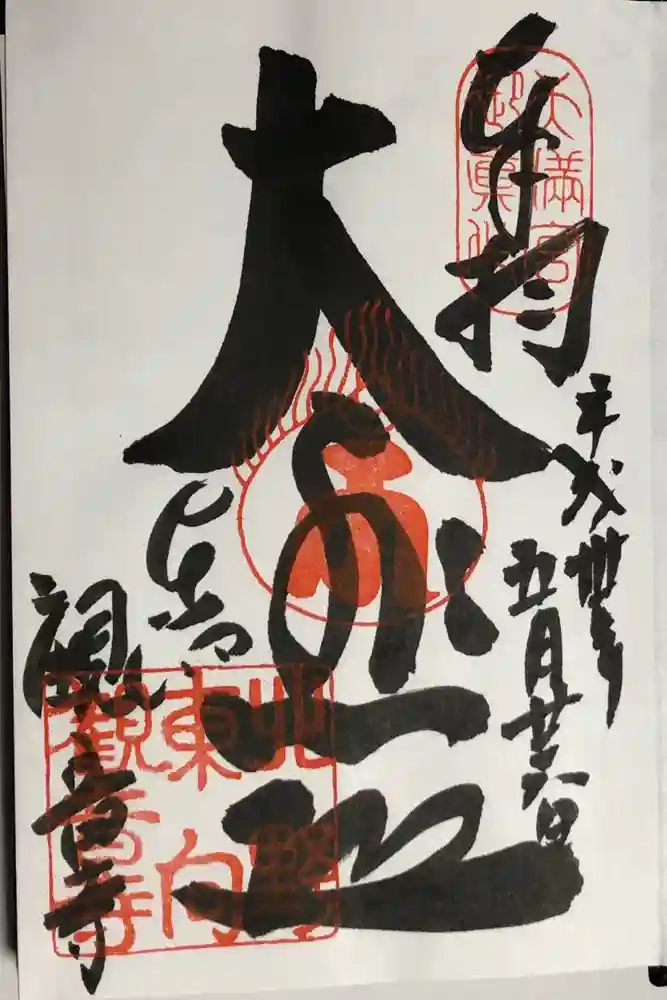 奉拝
天満宮
御真作
平成卅年
五月廿六日
大悲
東向
観音寺
北野
東向
観音寺